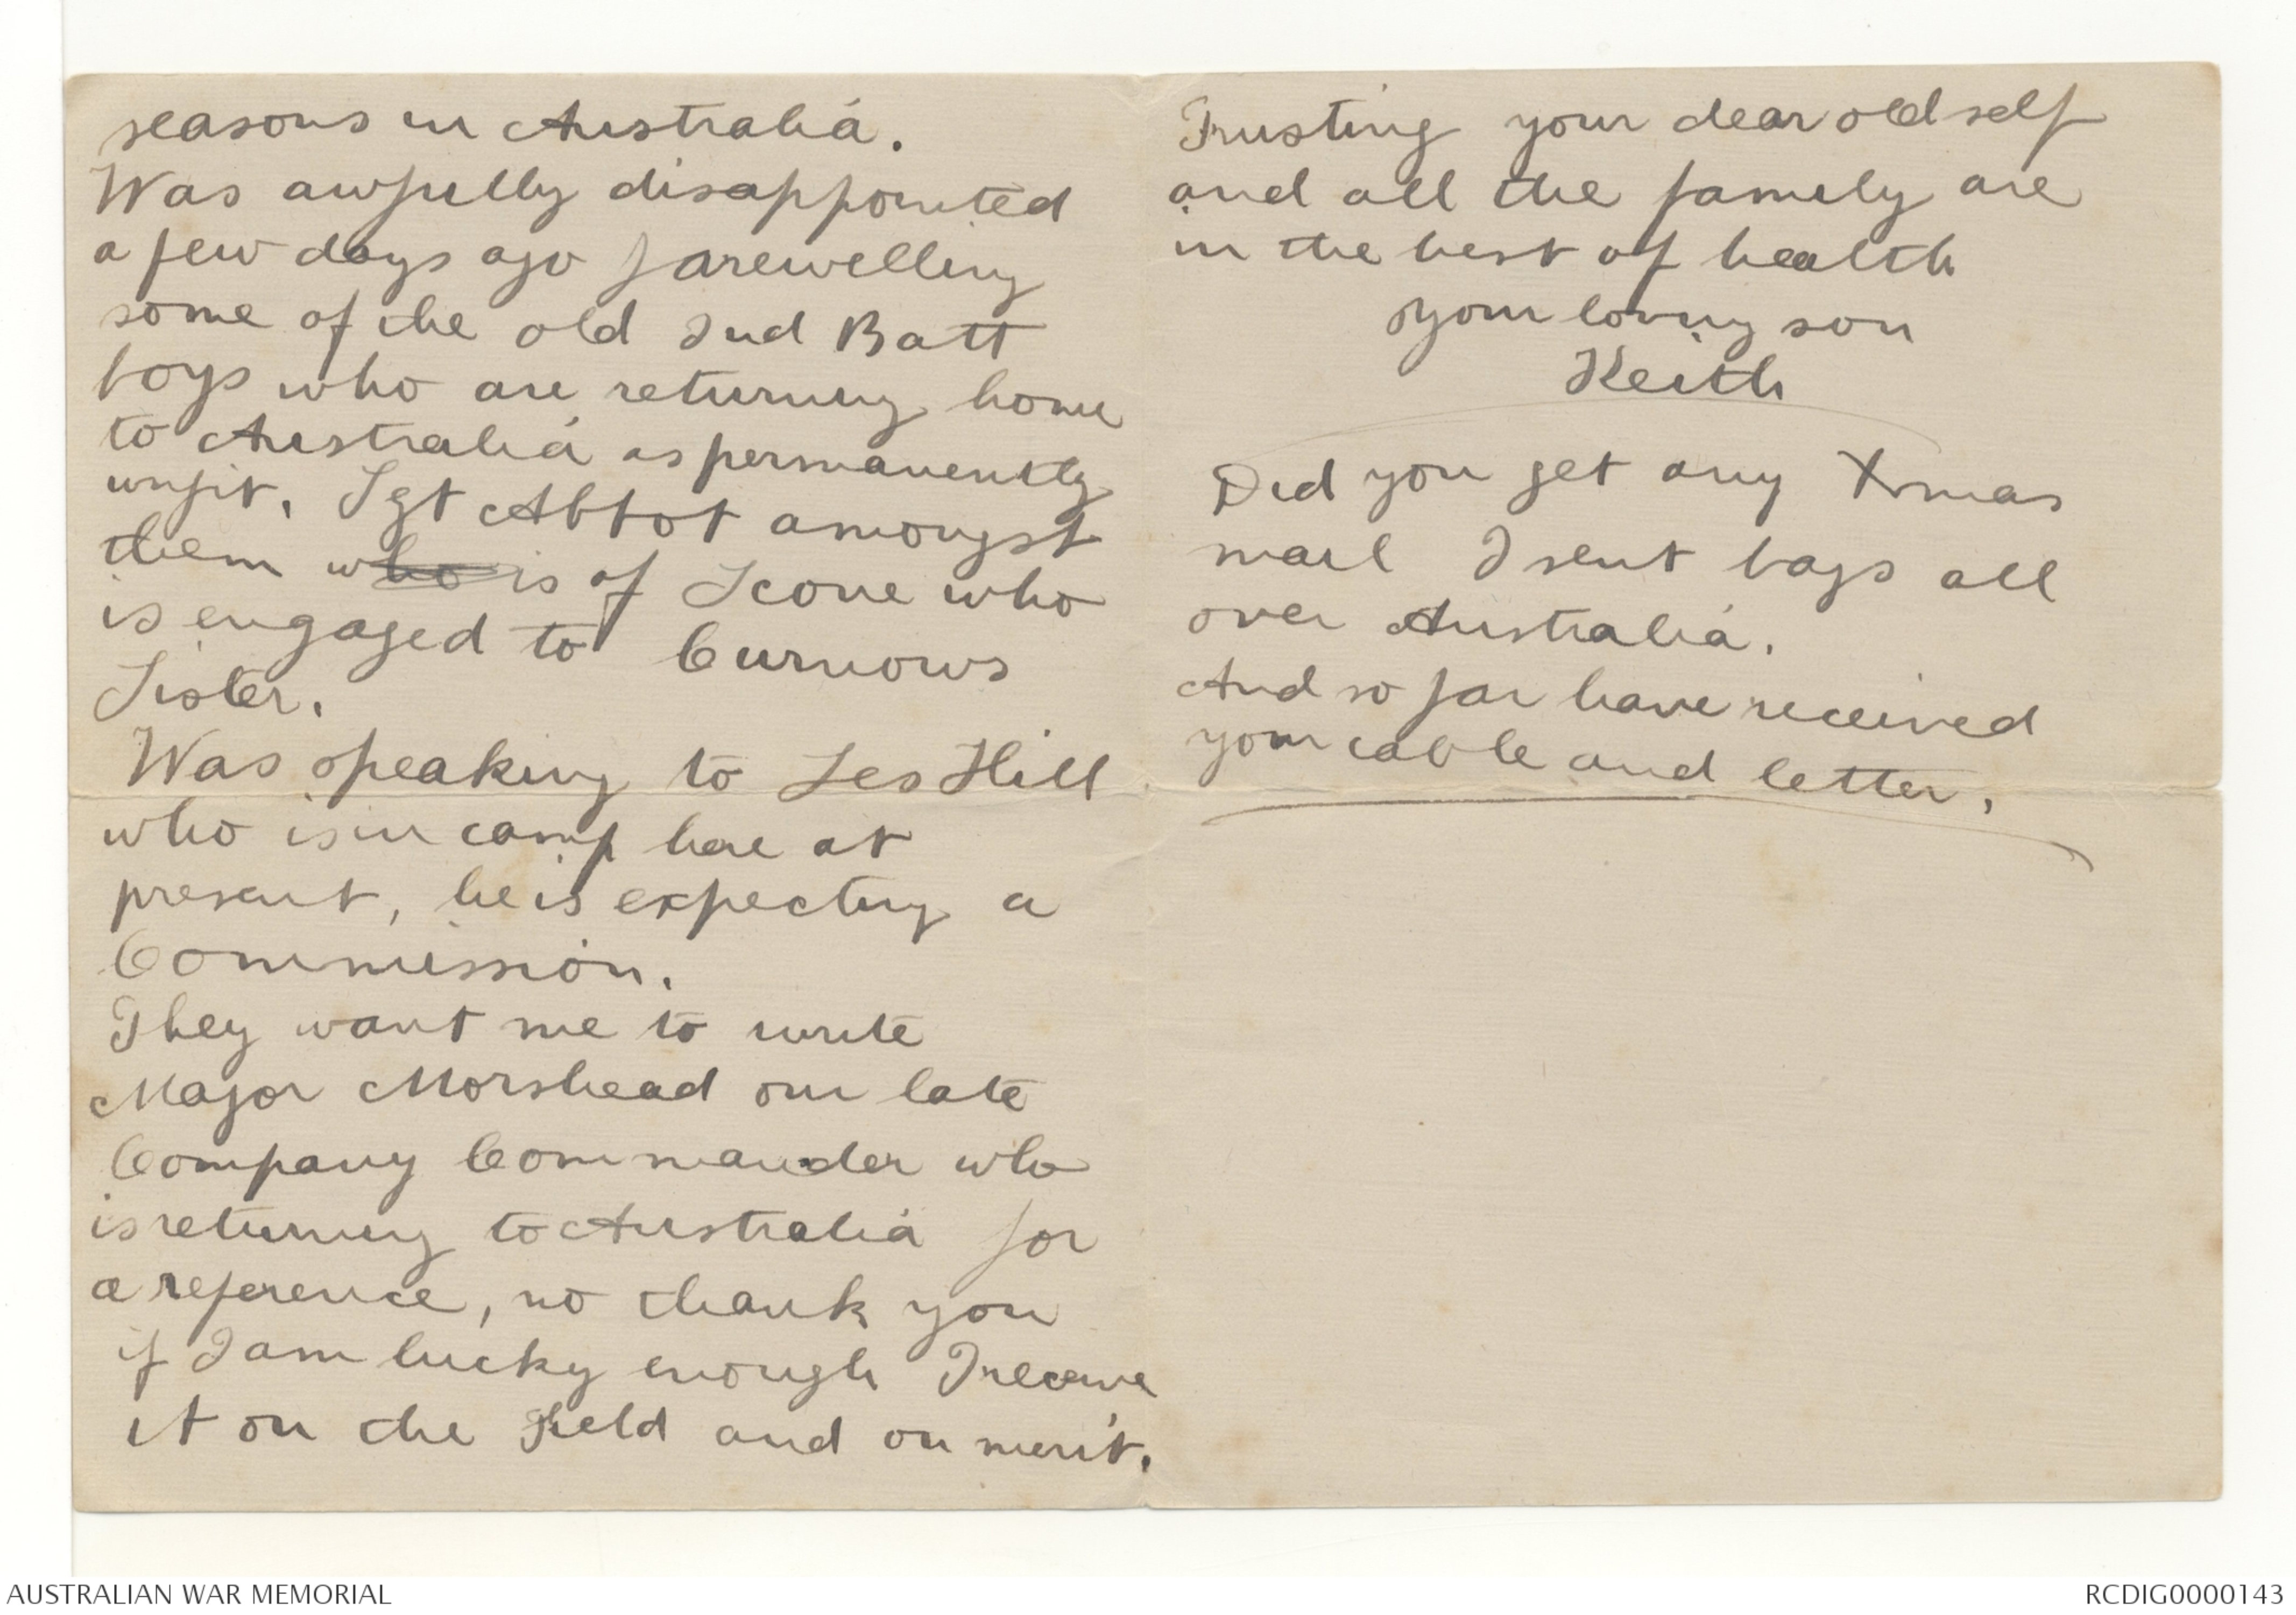 seasons in Australia.
Was awfully disappointed
a few days ago farewelling
some of the old 2nd Batt
boys who are returning home
to Australia as permanently
unfit, Sgt Abbot amongst
them who is of Scone who
is engaged to Curnows
Sister.
Was speaking to Les Hill
who is in camp here at
present, he is expecting a
Commission.
They want me to write
Major Morshead our late
Company Commander who
is returning to Australia for
a reference, no thank you
if I am lucky enough I receive
it on the Field and on merit.
Trusting your dear old self
and all the family are
in the best of health
your loving son
Keith
Did you get any Xmas
mail I sent bags all
over Australia.
And so far have received
your cable and letter.
AUSTRALIAN WAR MEMORIAL
RCDIG0000143